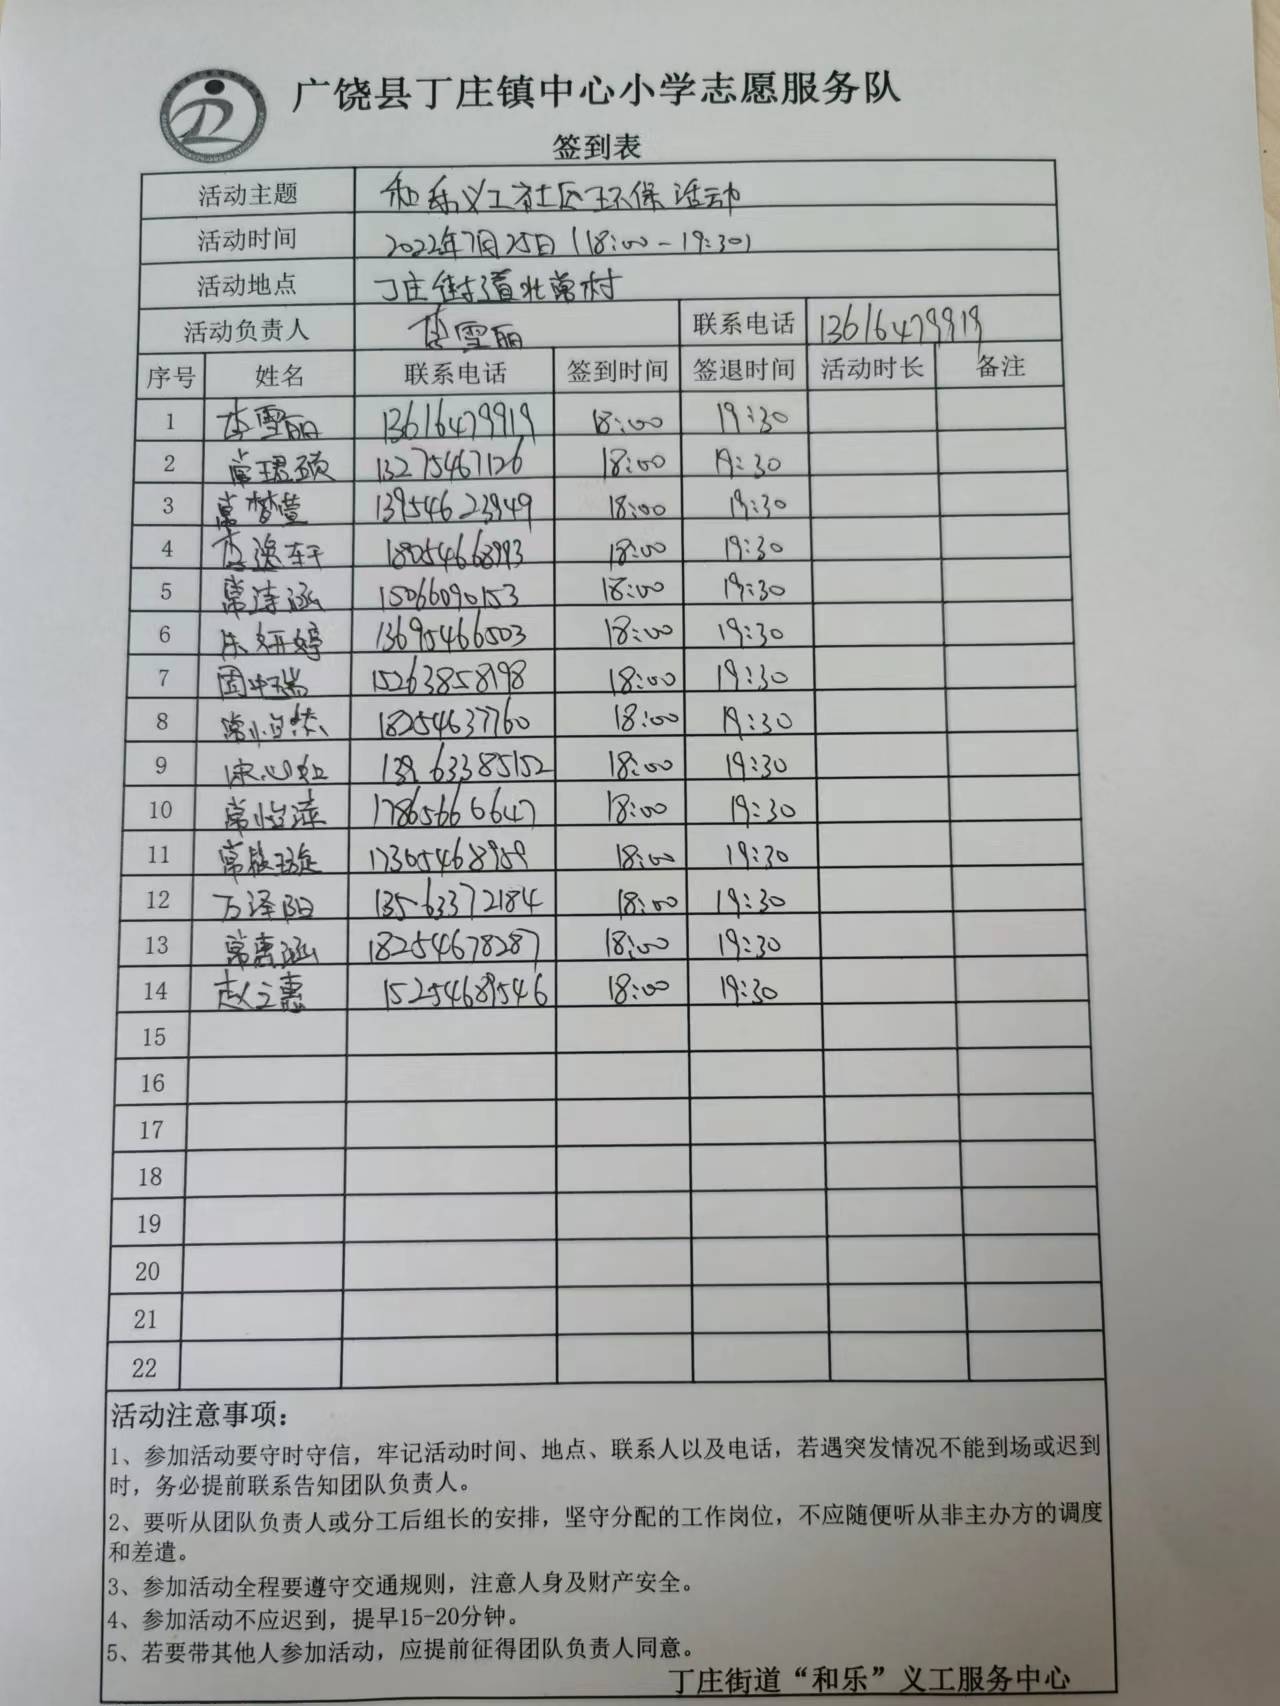 广饶县丁庄镇中心小学志愿服务队
签到表
活动主题 和乐义工社区环保活动
活动时间 2022年7月25日(18:00-19:30)
活动地点 丁庄街道北常村
活动负责人 李雪丽 联系电话 13616479919
序号 姓名 联系电话 签到时间 签退时间 活动时长 备注
1 李雪丽 13616479919 18:00 19:30
2 常珺硕 13275467126 18:00 19:30
3 常梦萱 13954623949 18:00 19:30
4 李逸轩 18054668993 18:00 19:30
5 常诗涵 15066090153 18:00 19:30
6 朱妍婷 13695466503 18:00 19:30
7 15263858198 18:00 19:30
8 18254637760 18:00 19:30
9 18:00 19:30
10 17865666647 18:00 19:30
11 17305468959 18:00 19:30
12 万泽阳 13563372184 18:00 19:30
13 18254678287 18:00 19:30
14 赵立惠 15254689546 18:00 19:30
15
16
17
18
19
20
21
22
活动注意事项:
1、参加活动要守时守信，牢记活动时间、地点、联系人以及电话，若遇突发情况不能到场或迟到
时，务必提前联系告知团队负责人。
2、要听从团队负责人或分工后组长的安排，坚守分配的工作岗位，不应随便听从非主办方的调度
和差遣。
3、参加活动全程要遵守交通规则，注意人身及财产安全。
4、参加活动不应迟到，提早15-20分钟。
5、若要带其他人参加活动，应提前征得团队负责人同意。
丁庄街道“和乐”义工服务中心